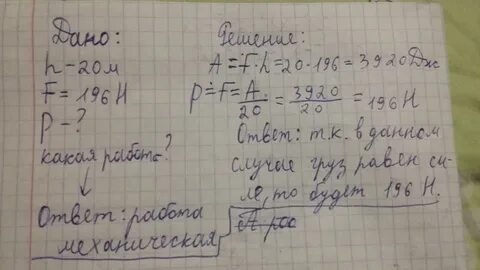 Дано:
h - 20 м
F = 196 Н
P - ?
какая работа?
↓
Ответ: работа
механическая
Решение:
A = F · h = 20 · 196 = 3920 Дж
P = F = A/20 = 3920/20 = 196 Н
Ответ: т.к. в данном
случае груз равен си-
ле, то будет 196 Н.